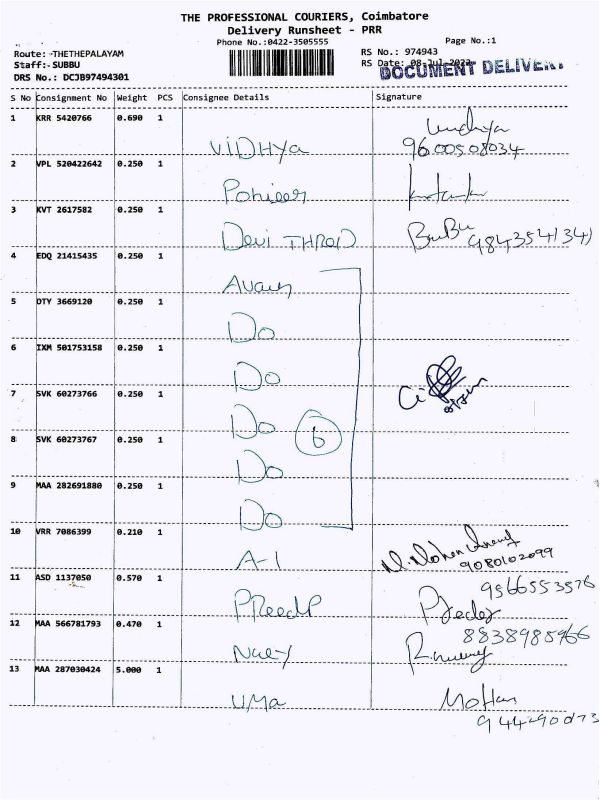 THE PROFESSIONAL COURIERS, Coimbatore
Delivery Runsheet - PRR
Phone No.:0422-3505555
Page No.:1
Route: -THETHEPALAYAM
RS No.: 974943
Staff:-SUBBU
RS Date: 08-Jul-2023
DOCUMENT DELIVERY
DRS No.: DCJB97494301
S No Consignment No Weight PCS Consignee Details Signature
1 KRR 5420766 0.690 1
VIDHYA 9600508034
2 VPL 520422642 0.250 1
3 KVT 2617582 0.250 1
Devi THRED BaBu 9843541341
4 EDQ 21415435 0.250 1
5 DTY 3669120 0.250 1
Do
6 IXM 501753158 0.250 1
Do
7 SVK 60273766 0.250 1
Do 6
8 SVK 60273767 0.250 1
Do
9 MAA 282691880 0.250 1
Do
10 VRR 7086399 0.210 1
A-1 9080102099
11 ASD 1137050 0.570 1
9566553578
PReedP
12 MAA 566781793 0.470 1
8838985966
13 MAA 287030424 5.000 1
UMa Mohan